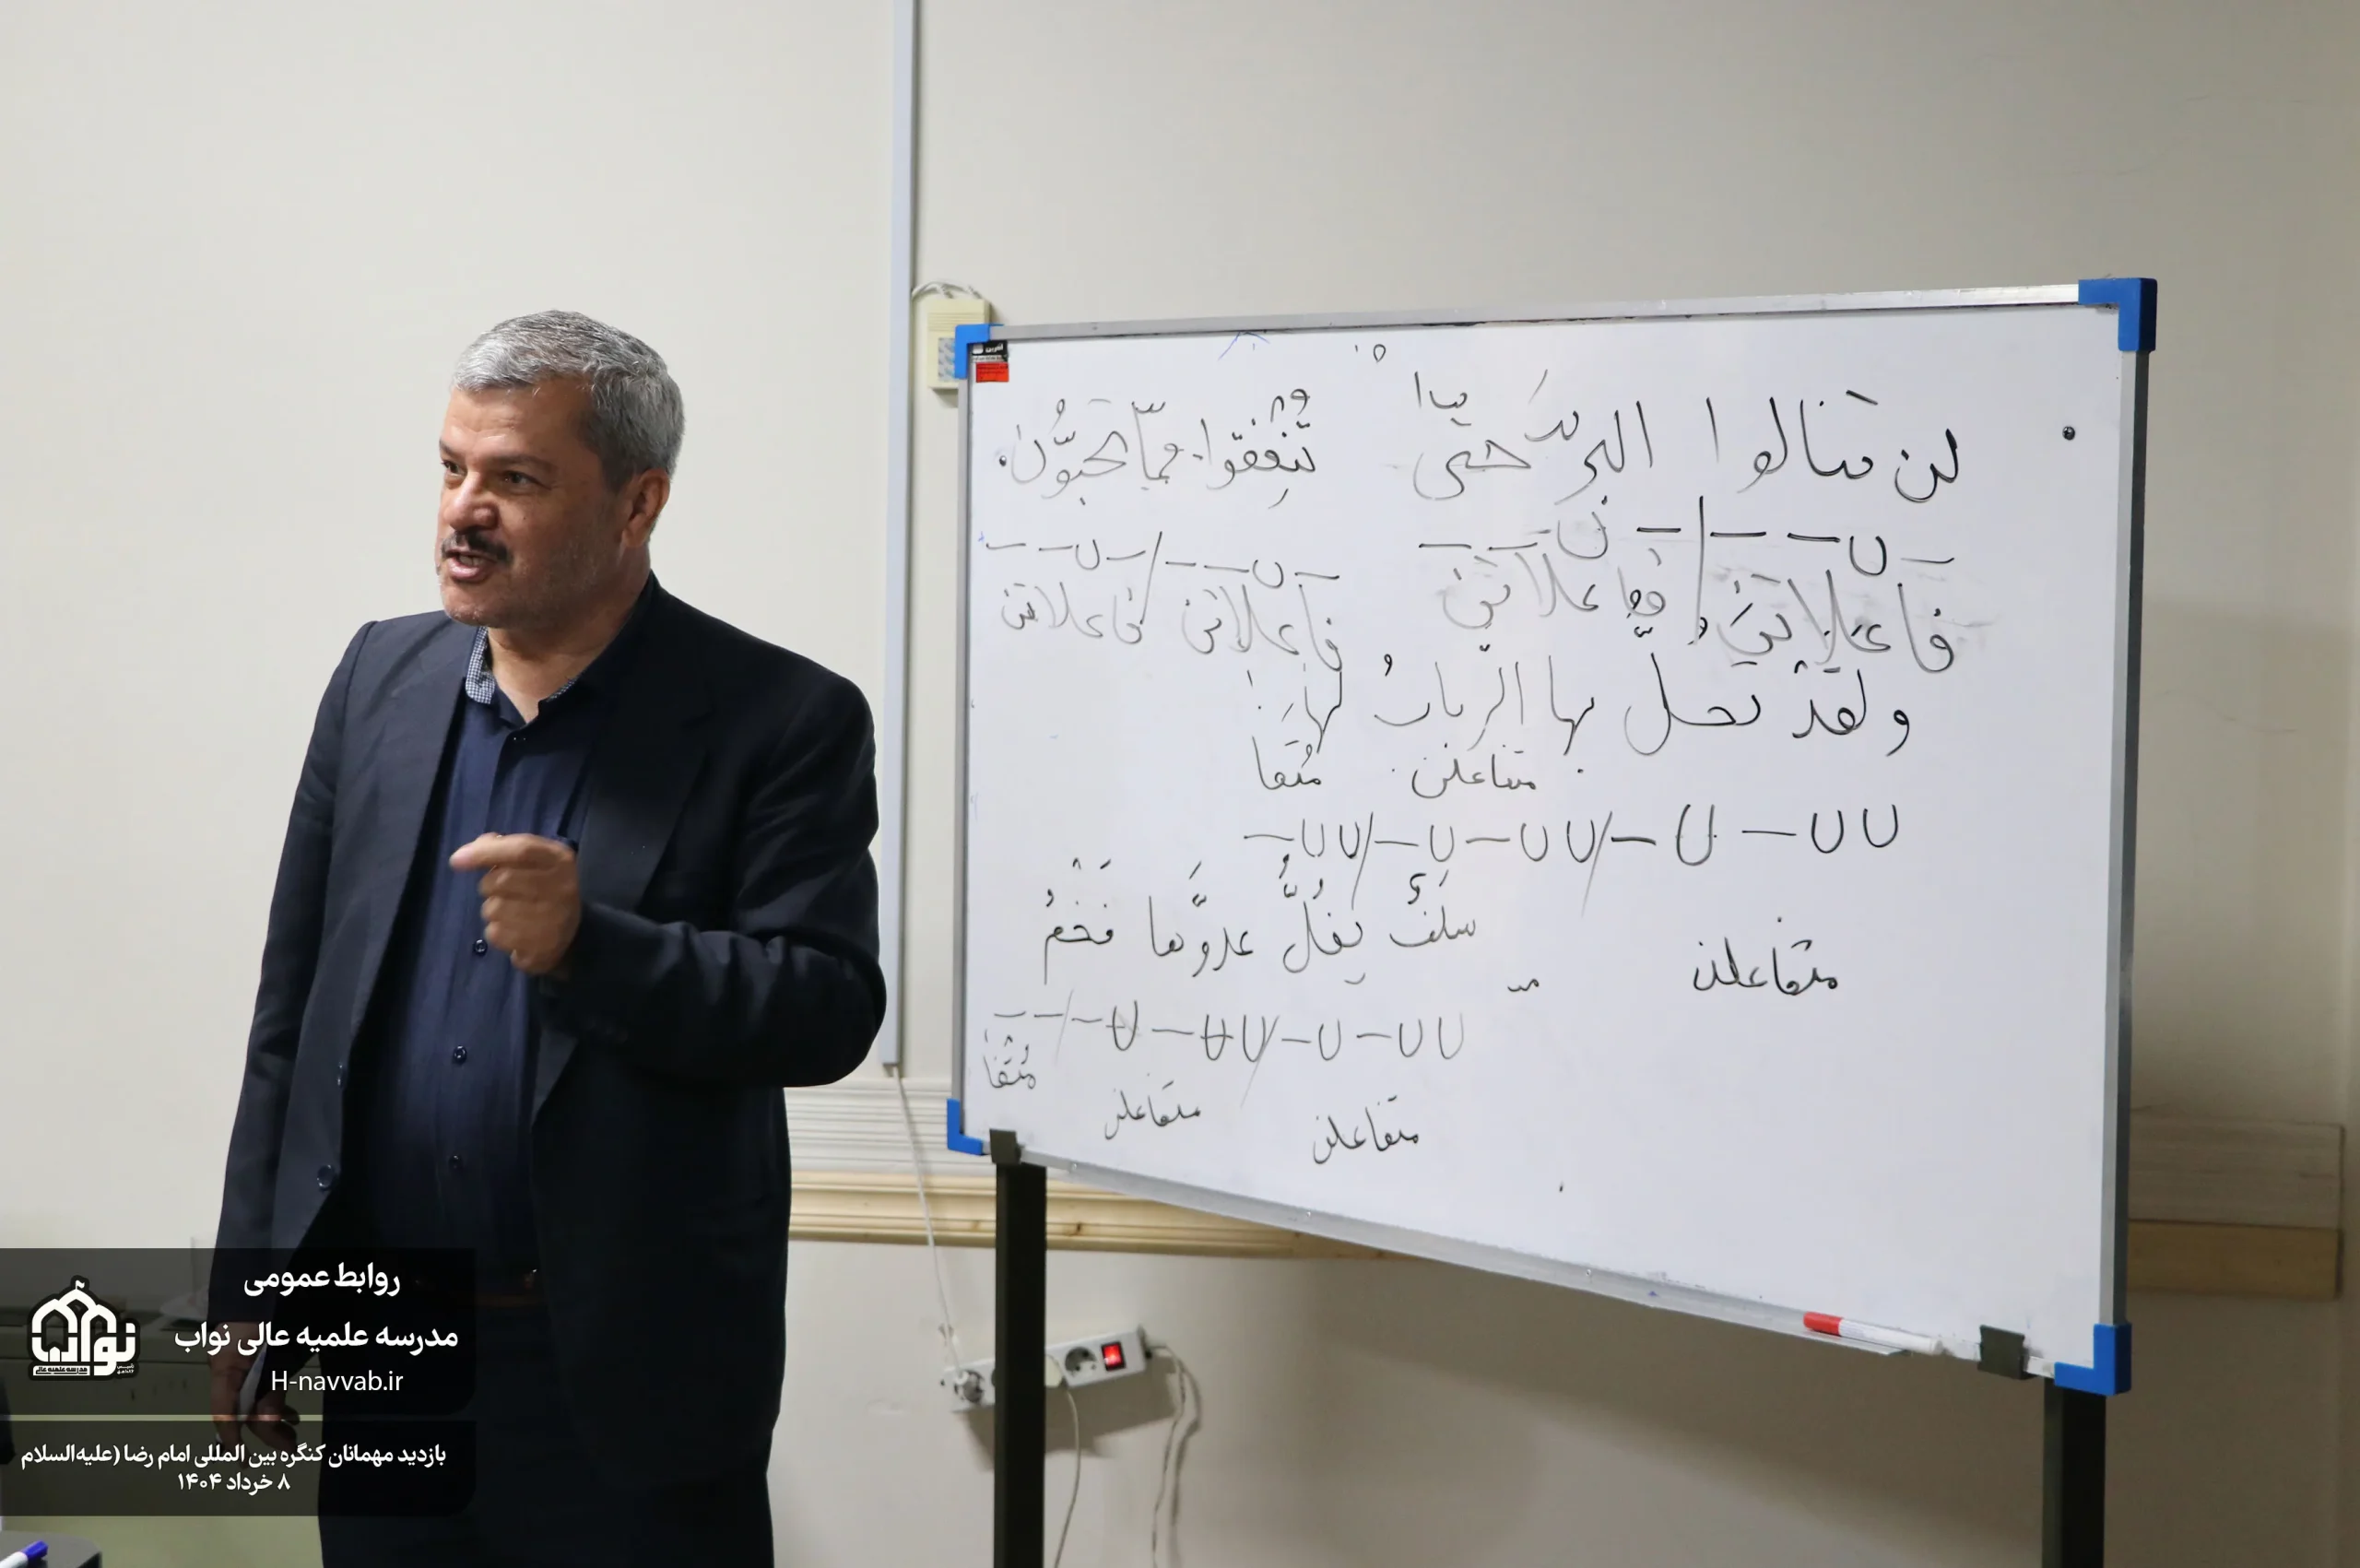 لن تنالوا البرَّ حتى تُنْفِقوا مِمّا تُحبّون.
– U – – / – U – –   – U – – / – U – –
فاعلاتن / فاعلاتن فاعلاتن فاعلاتن
ولقدْ تحلُّ بها الرّبابُ لها
متفاعلن مُتَفا
U U – U – / U U – U – / U U –
سلفٌ يفُلُّ عدوَّها فَخْمُ
متفاعلن
U U – U – / U U – U – / – –
مُتْفا
متفاعلن متفاعلن
روابط عمومی
مدرسه علمیه عالی نواب
H-navvab.ir
نواب
مدرسه علمیه عالی
بازدید مهمانان کنگره بین المللی امام رضا (علیه‌السلام
۸ خرداد ۱۴۰۴